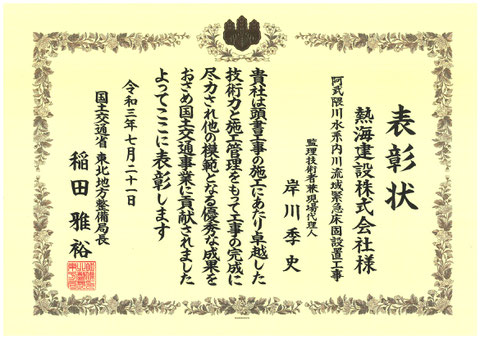 表彰状
熱海建設株式会社様
阿武隈川水系内川流域緊急床固設置工事
監理技術者兼現場代理人
岸川季史
貴社は頭書工事の施工にあたり卓越した
技術力と施工管理をもって工事の完成に
尽力され他の模範となる優秀な成果を
おさめ国土交通事業に貢献されました
よってここに表彰します
令和三年七月二十一日
国土交通省 東北地方整備局長
稲田雅裕